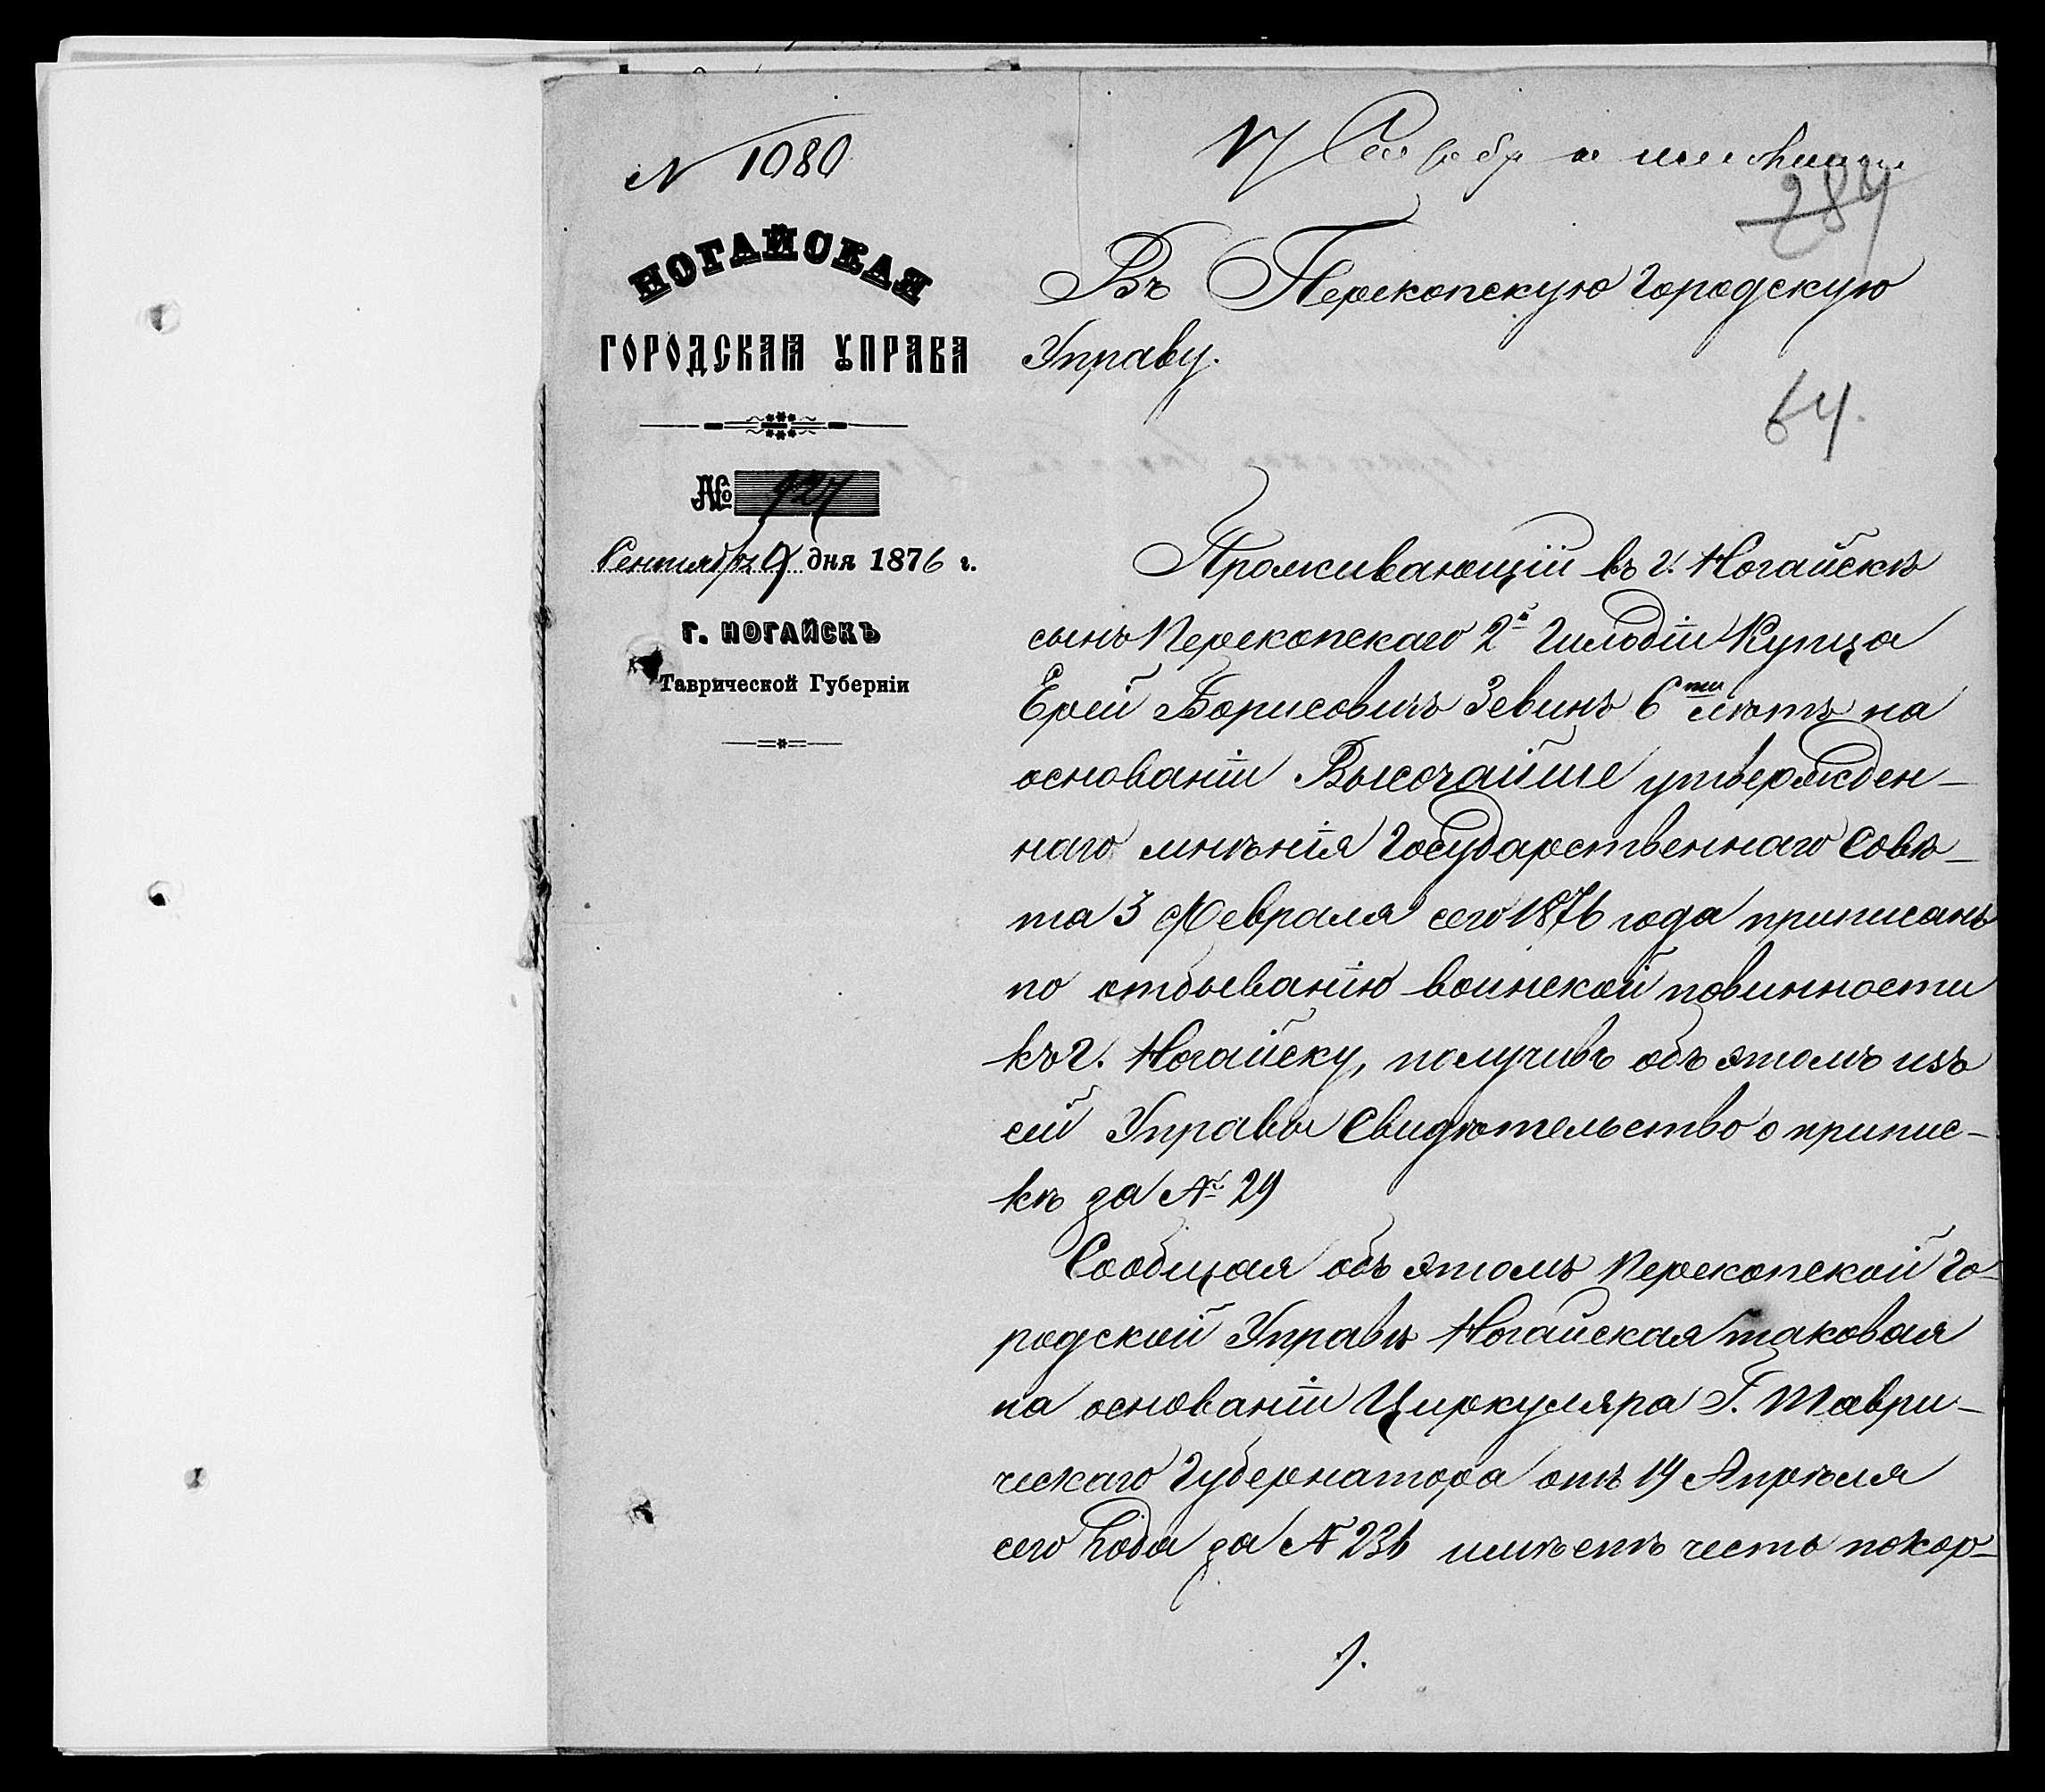 N 1080
НОГАЙСКАЯ
ГОРОДСКАЯ УПРАВА
№ 927
Сентября 9 дня 1876 г.
Г. НОГАЙСКЪ
Таврической Губерніи
17
284
Въ Перекопскую Городскую
Управу.
64.
Проживающій въ г. Ногайскѣ
сынъ Перекопскаго 2й Гильдіи Купца
Ерей Борисовичъ Зевинъ 6ти лѣтъ на
основаніи Высочайше утвержден-
наго мнѣнія Государственнаго Совѣ-
та 3 Февраля сего 1876 года приписанъ
по отбыванію воинской повинности
къ г. Ногайску, получивъ объ этомъ изъ
сей Управы Свидѣтельство о припис-
кѣ за № 29
Сообщая объ этомъ Перекопской Го-
родской Управѣ Ногайская таковая
на основаніи Циркуляра Г. Таври-
ческаго Губернатора отъ 14 Апрѣля
сего Года за № 231 имѣетъ честь покор-